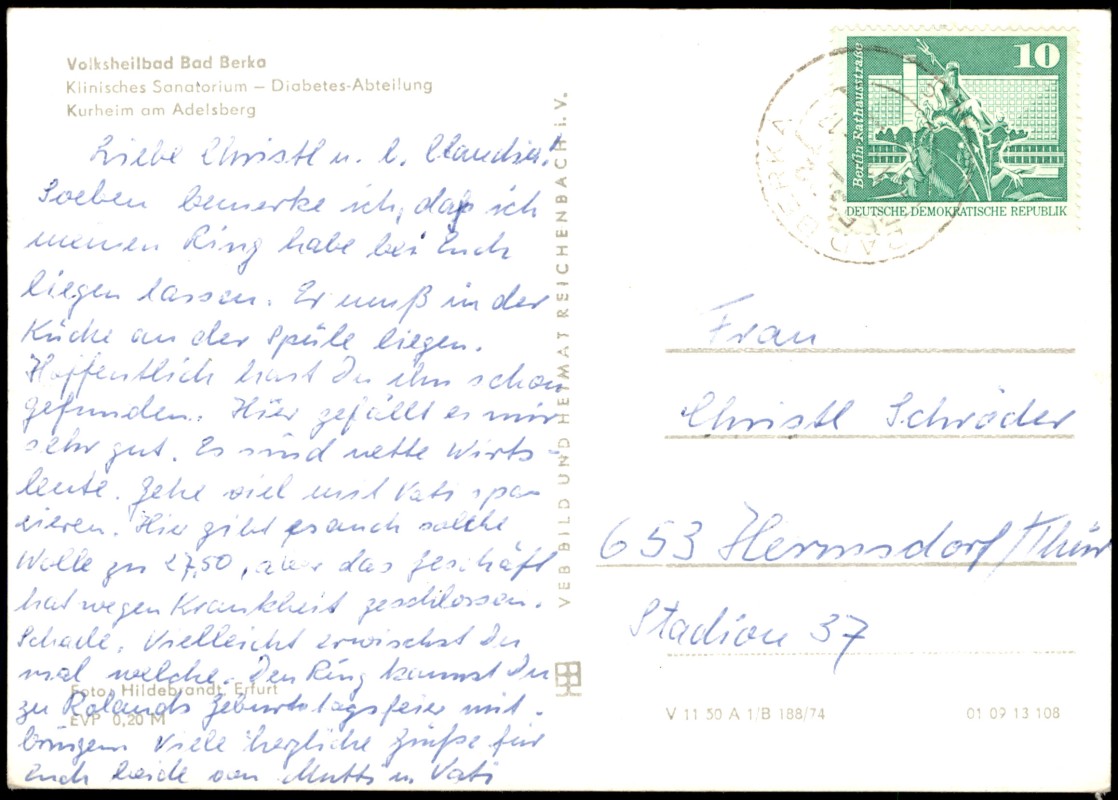 Volksheilbad Bad Berka
Klinisches Sanatorium – Diabetes-Abteilung
Kurheim am Adelsberg
Liebe Christl u. l. Claudia!
Soeben bemerke ich, daß ich
meinen Ring habe bei Euch
liegen lassen. Er muß in der
Küche an der Spüle liegen.
Hoffentlich hast Du ihn schon
gefunden. Hier gefällt es mir
sehr gut. Es sind nette Wirts-
leute. Gehe viel mit Vati spa-
zieren. Hier gibt es auch solche
Wolle zu 27,50, aber das Geschäft
hat wegen Krankheit geschlossen.
Schade. Vielleicht erwischst Du
mal welche. Den Ring kannst Du
zu Rolands Geburtstagsfeier mit-
bringen. Viele herzliche Grüße für
Euch beide von Mutti u. Vati
Foto: Hildebrandt, Erfurt
EVP 0,20 M
VEB BILD UND HEIMAT REICHENBACH i. V.
10
Berlin-Rathausstraße
DEUTSCHE DEMOKRATISCHE REPUBLIK
BAD BERKA
Frau
Christl Schröder
653 Hermsdorf/Thür
Stadion 37
V 11 50 A 1/B 188/74
01 09 13 108